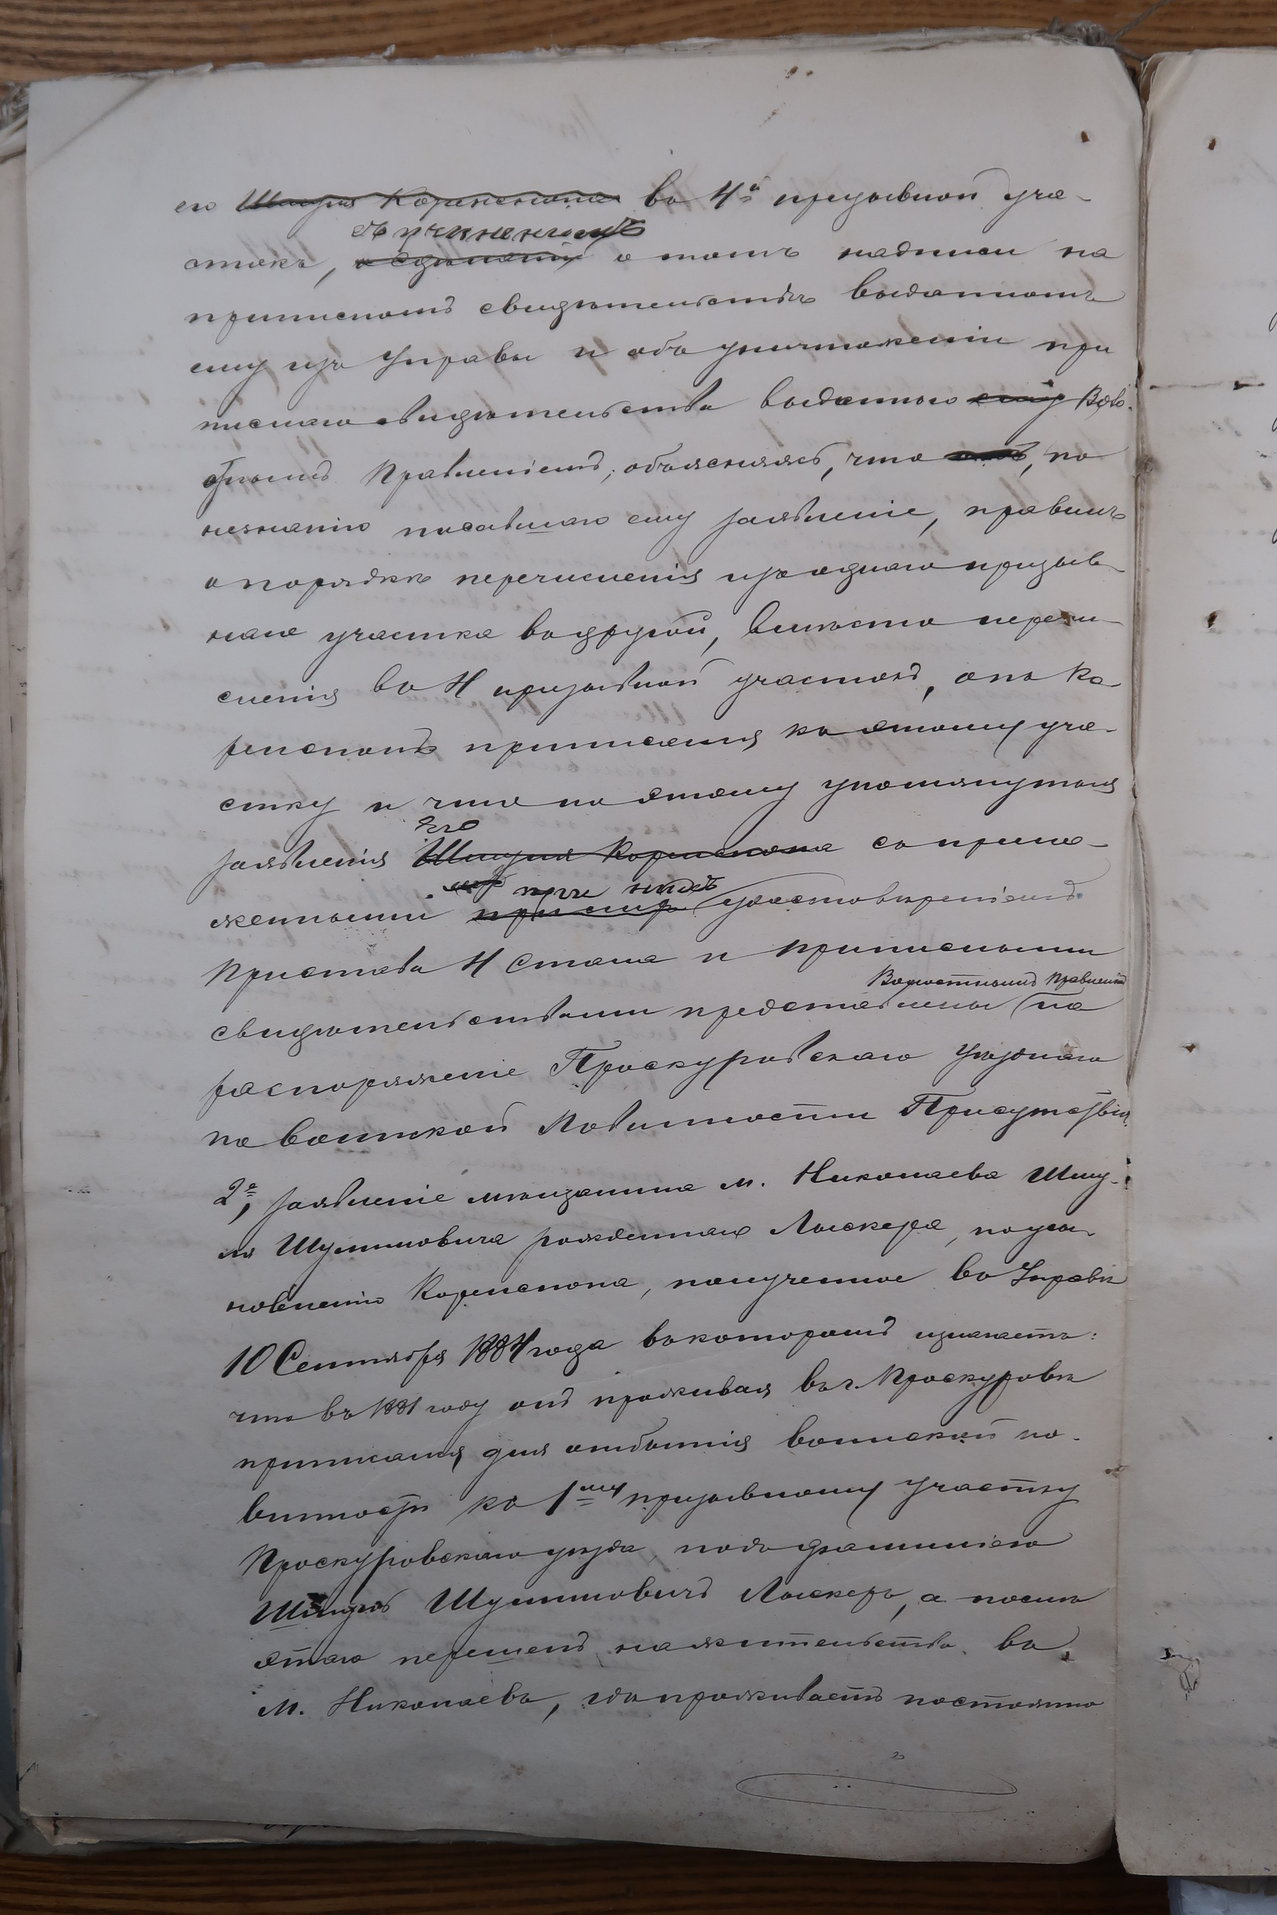 его Шмуля Корженюка въ 4й призывной уча-
стокъ, съ учиненіемъ о томъ надписи на
приписномъ свидѣтельствѣ выданномъ
ему изъ Управы и объ уничтоженіи при
писнаго свидѣтельства выданнаго ему Воло-
стнымъ Правленіемъ, объясняя, что, по
незнанію писавшаго ему заявленіе, правилъ
о порядкѣ перечисленія изъ однаго призыв-
наго участка въ другой, вмѣсто перечи-
сленія въ 4 призывной участокъ, онъ
приписался къ этому уча-
стку и что по этому упомянутыя
заявленія его Шмуля со прило-
женными удостовѣреніемъ
Пристава 4 Стана и приписными
Волостнымъ Правленіемъ
свидѣтельствами представлены на
распоряженіе Проскуровскаго Уѣзднаго
по воинской повинности Присутствія.
2е, заявленіе мѣщанина м. Николаева Шму-
ля Шулимовича рожденнаго Лыскера, по усы-
новленію, полученное въ Управѣ
10 Сентября 1884 года въ которомъ излагаетъ:
что въ 1881 году онъ проживая въ г. Проскуровѣ
приписался для отбытія воинской по-
винности къ 1му призывному участку
Проскуровскаго уѣзда подъ фамиліею
Шмуль Шулимовичъ Лыскеръ, а послѣ
этаго перешелъ на жительство въ
м. Николаевъ, гдѣ проживаетъ постоянно